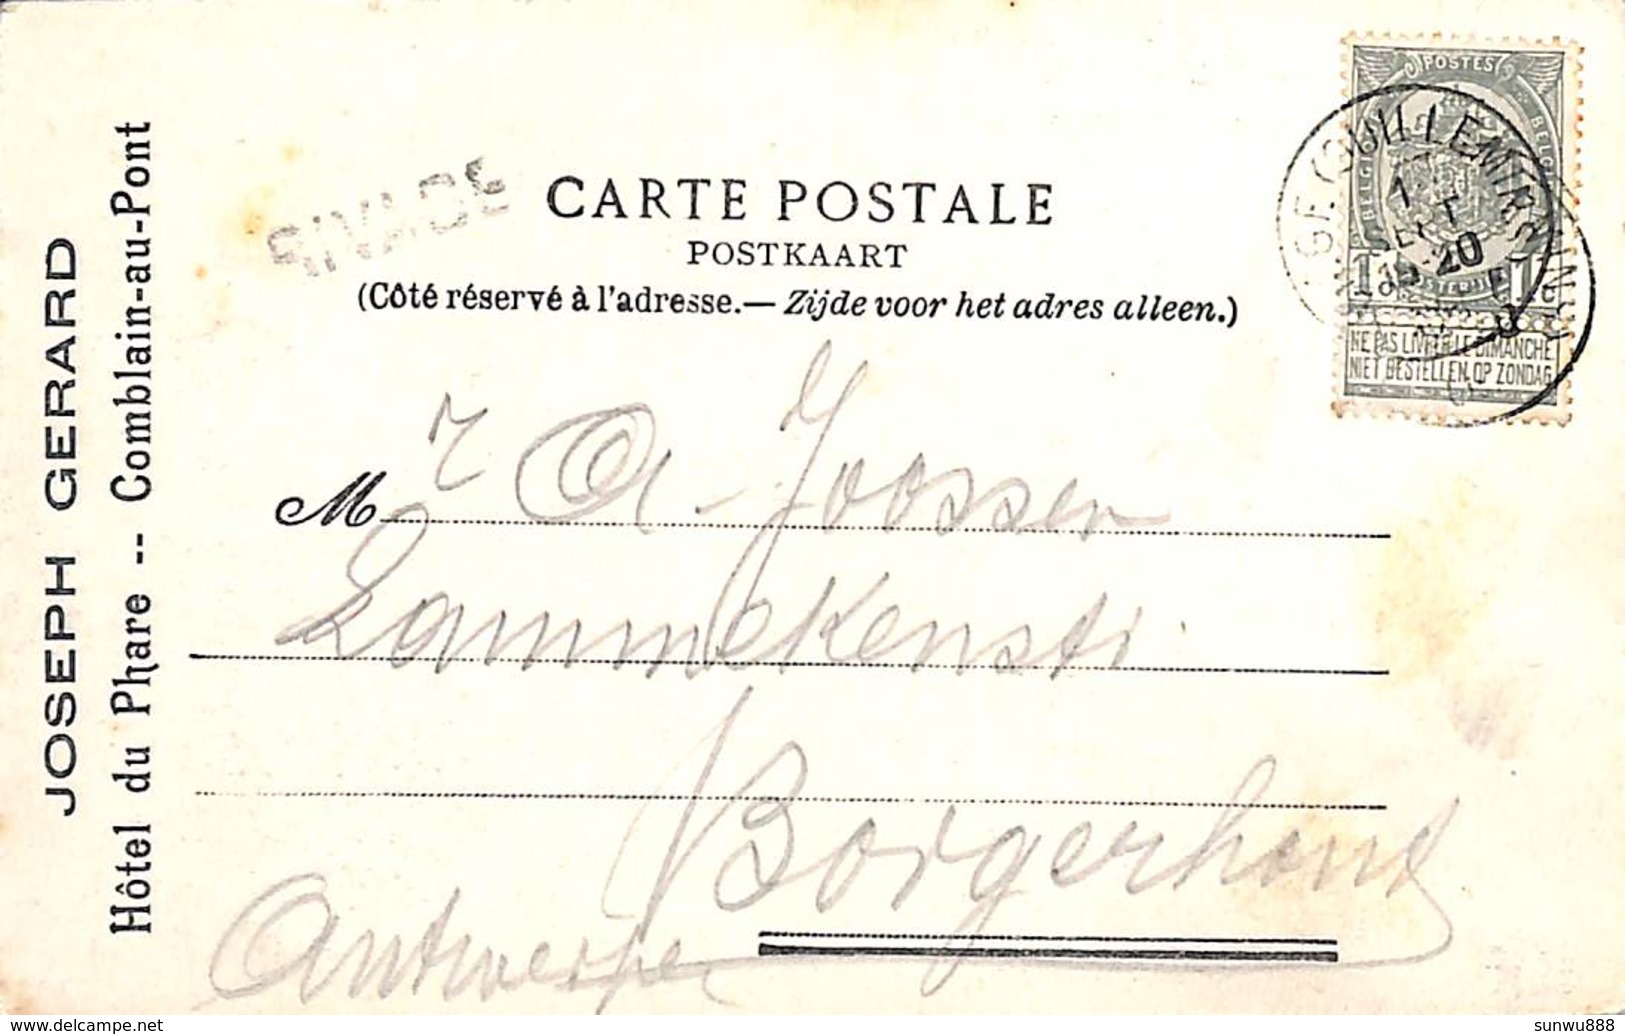 JOSEPH GERARD
Hôtel du Phare -- Comblain-au-Pont
RIVAGE
CARTE POSTALE
POSTKAART
(Côté réservé à l'adresse.— Zijde voor het adres alleen.)
POSTES
BELGIQUE
BELGIË
1c 1c
NE PAS LIVRER LE DIMANCHE
NIET BESTELLEN OP ZONDAG
(GUILLEMINS)
SEPT
20
Mr A. Joossen
Lammekenstr.
Borgerhout
Antwerpen
delcampe.net
sunwu888